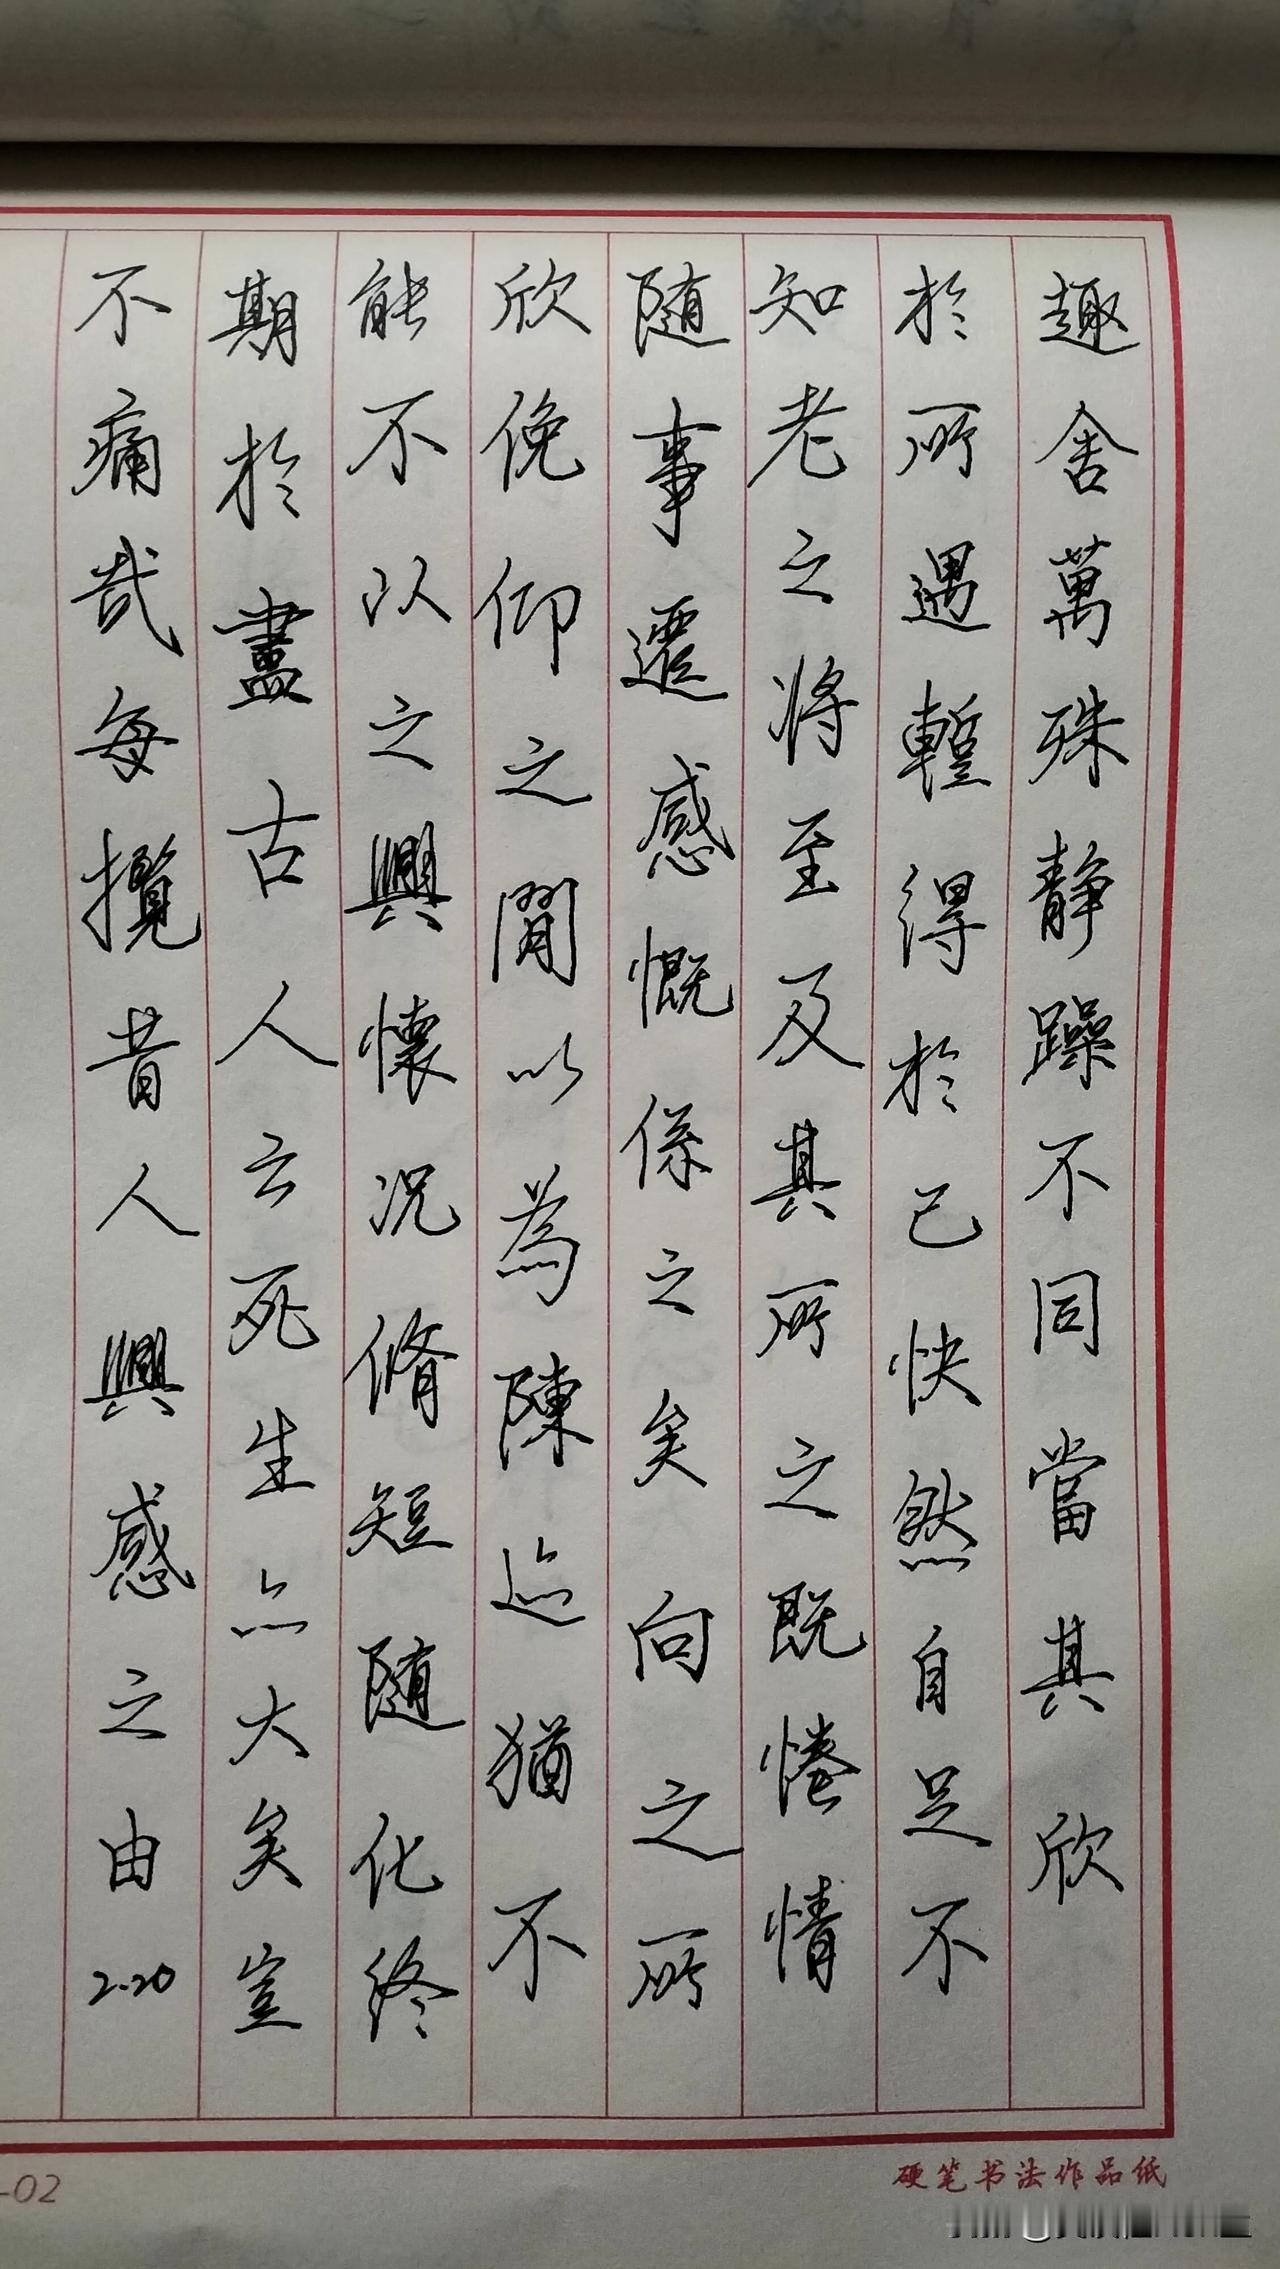 趣舍萬殊静躁不同當其欣
於所遇蹔得於己快然自足不
知老之将至及其所之既惓情
随事遷感慨係之矣向之所
欣俛仰之閒以為陳迹猶不
能不以之興懷况脩短随化終
期於盡古人云死生亦大矣豈
不痛哉每攬昔人興感之由
2.20
-02
硬笔书法作品纸